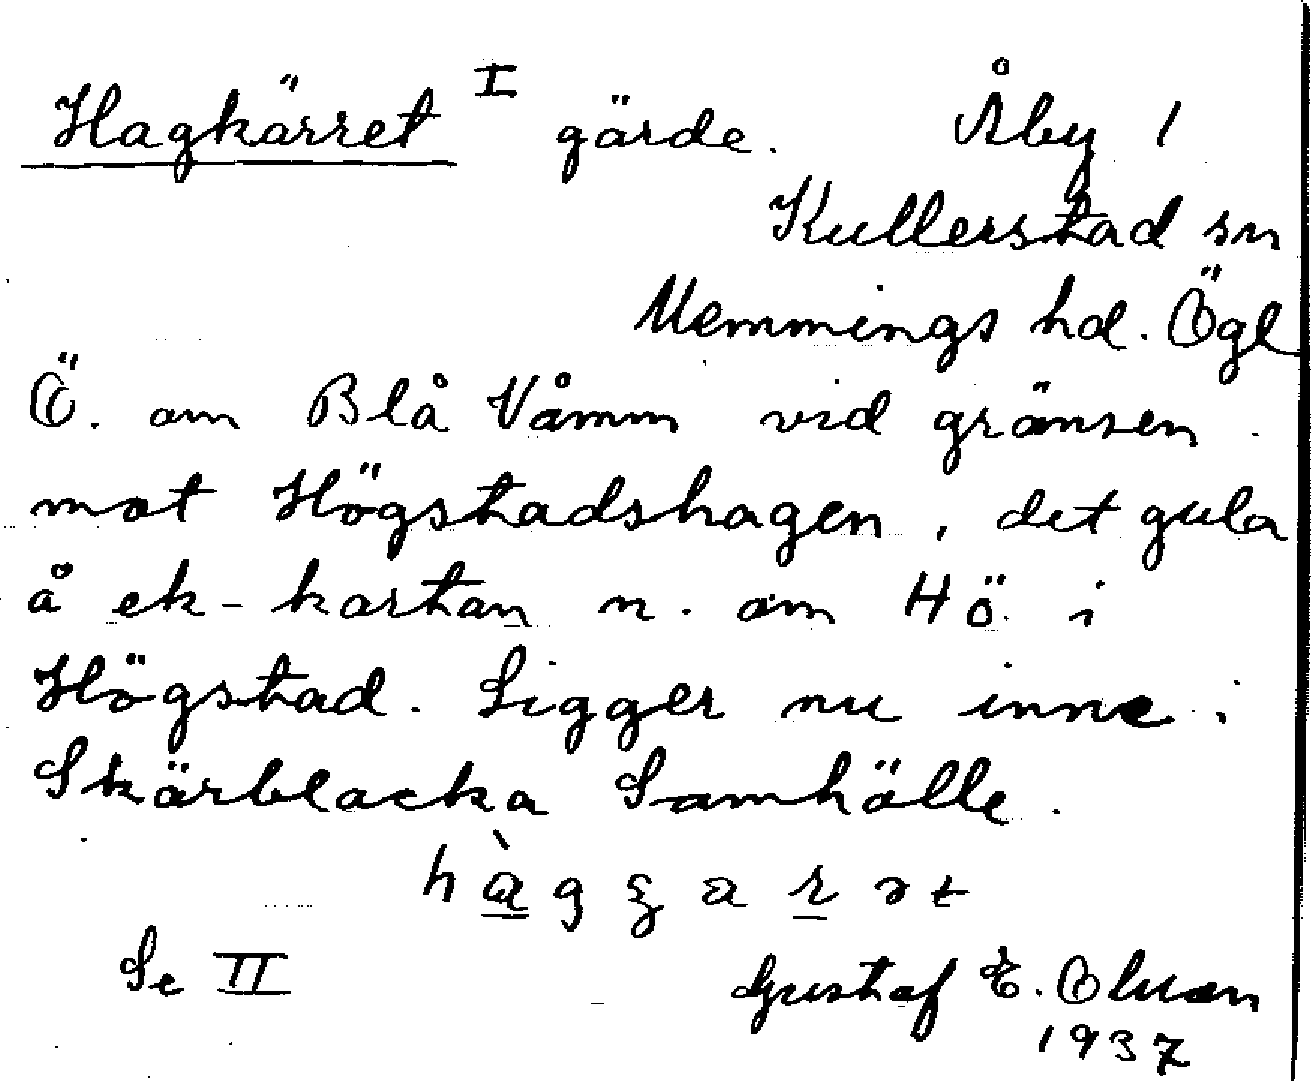 Hagkärret I gärde. Åby 1
Kullerstad sn
Memmings hd. Ögl
Ö. om Blå Våmm vid gränsen
mot Högstadshagen, det gula
å ek-kartan n. om Hö i
Högstad. Ligger nu inne i
Skärblacka Samhälle.
Se II Gustaf E. Olsson
1937